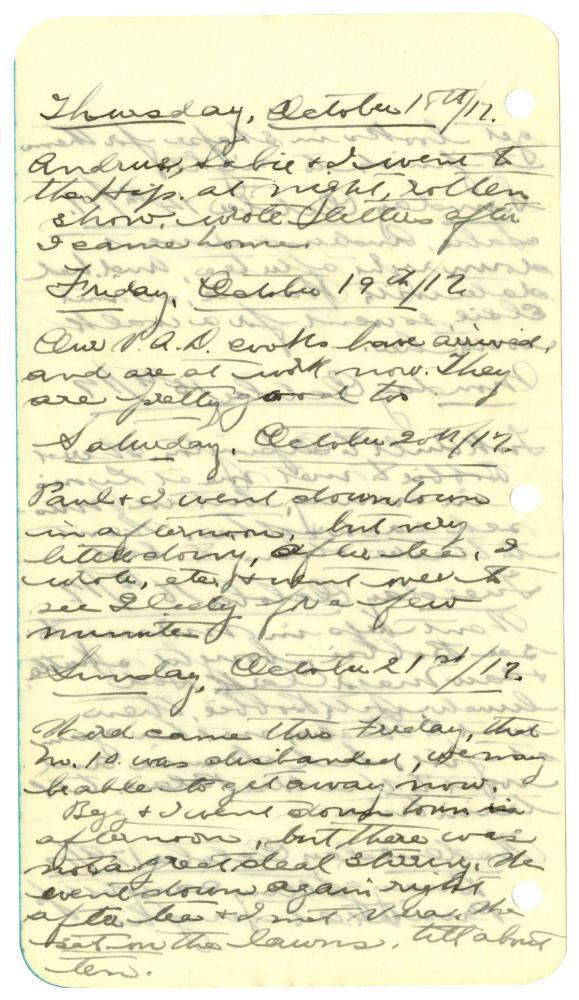 Thursday, October 18th/17.
Andrus, Labie & I went to
the Hip. at night, rotten
show. wrote letters after
I came home.
Friday, October 19th/17.
Our V.A.D. cooks have arrived,
and are at work now. They
are pretty good too
Saturday, October 20th/17.
Paul & I went down town
in afternoon, but very
little doing, after tea, I
wrote, etc, & went over to
see for a few
minutes
Sunday, October 21st/17.
Word came thro Friday, that
No. 10. was disbanded, we may
be able to get away now.
Begg & I went down town in
afternoon, but there was
not a great deal stirring. We
went down again right
after tea & I met Vera. We
sat on the lawns, till about
ten.